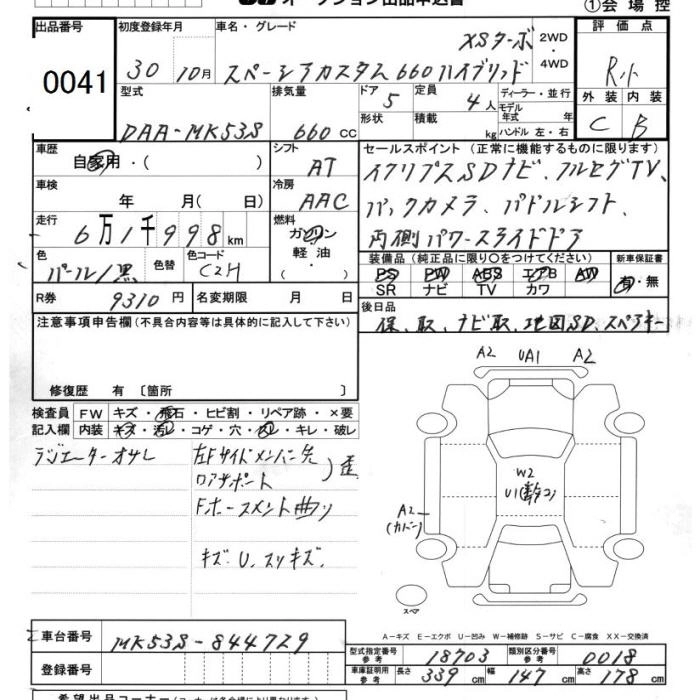 オークション出品申込書
①会場控
出品番号
0041
初度登録年月
30 10月
車名・グレード
XSターボ
スペーシアカスタム660ハイブリッド
2WD・4WD
評価点
R小
外装 内装
C B
型式
DAA-MK53S
排気量
660 CC
ドア 5
形状
定員 4人
積載 kg
ディーラー・並行
モデル年式 年
ハンドル 左・右
車歴
自家用・( )
シフト
AT
車検
年 月( 日)
冷房
AAC
走行
6万1千998km
燃料
ガソリン
軽油・
・
色
パール/黒
色替
色コード
C2H
R券 9310円
名変期限 月 日
セールスポイント(正常に機能するものに限ります)
イクリプスSDナビ、フルセグTV、
バックカメラ、パドルシフト、
両側パワースライドドア
装備品(純正品に限り〇をつけてください)
PS PW ABS エアB AW
SR ナビ TV カワ
新車保証書
有・無
後日品
保、取、ナビ取、地図SD、スペアキー
注意事項申告欄(不具合内容等は具体的に記入して下さい)
修復歴 有〔箇所 〕
検査員記入欄
FW キズ・飛石・ヒビ割・リペア跡・×要
内装 キズ・汚レ・コゲ・穴・凹レ・キレ・破レ
ラジエーターオサレ
左Fサイドメンバー先
ロアサポート
)歪
Fホースメント曲り
キズ U. スリキズ.
A2 UA1 A2
W2
A2
(カバー)
スペア
A－キズ E－エクボ U－凹み W－補修跡 S－サビ C－腐食 XX－交換済
車台番号
MK53S-844729
登録番号
型式指定番号 参考
18703
類別区分番号 参考
0018
車庫証明用 参考
長さ 339 cm 幅 147 cm 高さ 178 cm
希望出品コーナー